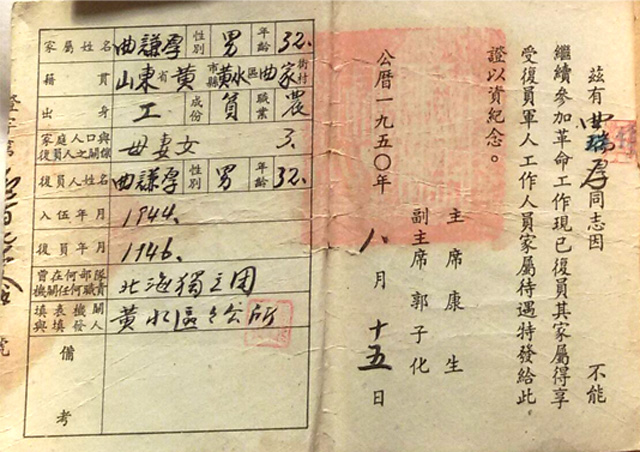 茲有曲瑞厚同志因　不能
繼續參加革命工作現已復員其家屬得享
受復員軍人工作人員家屬待遇特發給此
證以資紀念。
主席康生
副主席郭子化
公曆一九五〇年八月十五日
家屬姓名 曲謙厚 性別 男 年齡 32.
籍貫 山東省黃市縣黃水區曲家街村
出身 工 成份 貧 職業 農
家庭人口與復員人之關係 母妻女 3.
復員人姓名 曲謙厚 性別 男 年齡 32.
入伍年月 1944.
復員年月 1946.
曾在何部隊機關任何職責 北海獨立团
填表機關與填發人 黃水區公所
備考
號